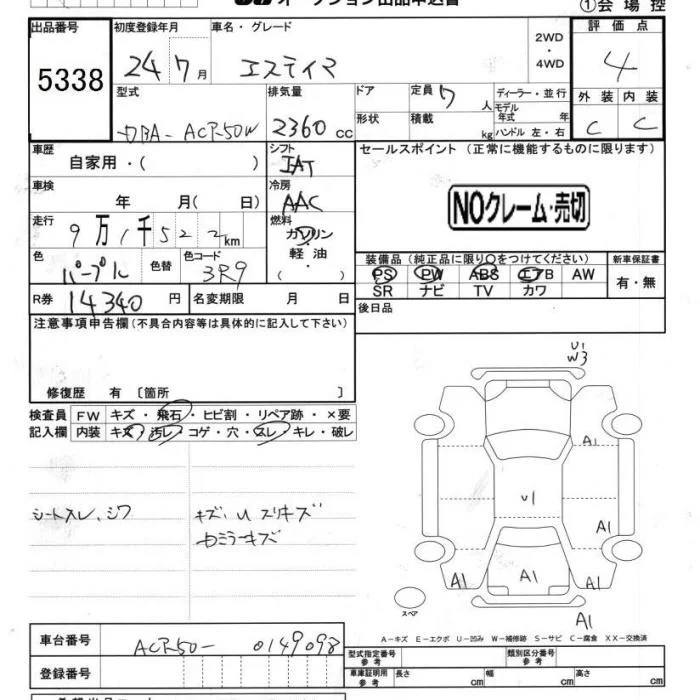 オークション出品申込書
①会場控
出品番号 初度登録年月 車名・グレード 2WD・4WD 評価点
5338 24年7月 エスティマ 4
型式 排気量 ドア 定員 7人 ディーラー・並行 外装 内装
DBA-ACR50W 2360cc 形状 積載 kg モデル年式 年 ハンドル 左・右 C C
車歴 シフト セールスポイント (正常に機能するものに限ります)
自家用・( ) IAT
車検 冷房
年 月( 日) AAC NOクレーム・売切
走行 燃料
9万1千522km ガソリン
軽油
色 色替 色コード ・( ) 装備品 (純正品に限り○をつけてください) 新車保証書
パープル 3R9 PS PW ABS エアB AW 有・無
R券 14340円 名変期限 月 日 SR ナビ TV カワ
注意事項申告欄 (不具合内容等は具体的に記入して下さい) 後日品
修復歴 有 〔箇所 〕
検査員 FW キズ・飛石・ヒビ割・リペア跡・×要
記入欄 内装 キズ・汚レ・コゲ・穴・スレ・キレ・破レ
シートスレ、シワ キズ、U スリキズ
カミラーキズ
U1
W3
A1
U1
A1
A1 A1
A1
スペア
A-キズ E-エクボ U-凹み W-補修跡 S-サビ C-腐食 XX-交換済
車台番号 ACR50-0149098 型式指定番号 参考 類別区分番号 参考
登録番号 車庫証明用 参考 長さ cm 幅 cm 高さ cm